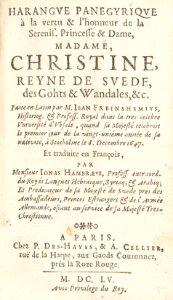 HARANGVE PANEGYRIQVE
à la vertu & l'honneur de la
Sereniss. Princesse & Dame,
MADAME,
CHRISTINE,
REYNE DE SVEDE,
des Gohts & Wandales, &c.
Faite en Latin par M. IEAN FREINSHEMIVS,
Historiog. & Profess. Royal dans la tres celebre
Vniuersité d'Vpsale, quand sa Majesté celebroit
le premier jour de la vingt-uniéme année de sa
nativité, à Stocholme le 8. Decembre 1647.
Et traduite en François,
PAR
Monsieur IONAS HAMBRÆVS, Profess. extraord.
du Roy és Langues Hebraïque, Syraq; & Arabiq;
Et Predicateur de sa Majesté de Suede prés des
Ambassadeurs, Princes Estrangers & de l'Armée
Allemande, estant au service de sa Majesté Tres-
Chrestienne.
A PARIS,
Chez P. DES-HAYES, & A. CELLIER,
ruë de la Harpe, aux Gands Couronnez,
prés la Roze Rouge.
M. DC. LV.
Avec Privilege du Roy.